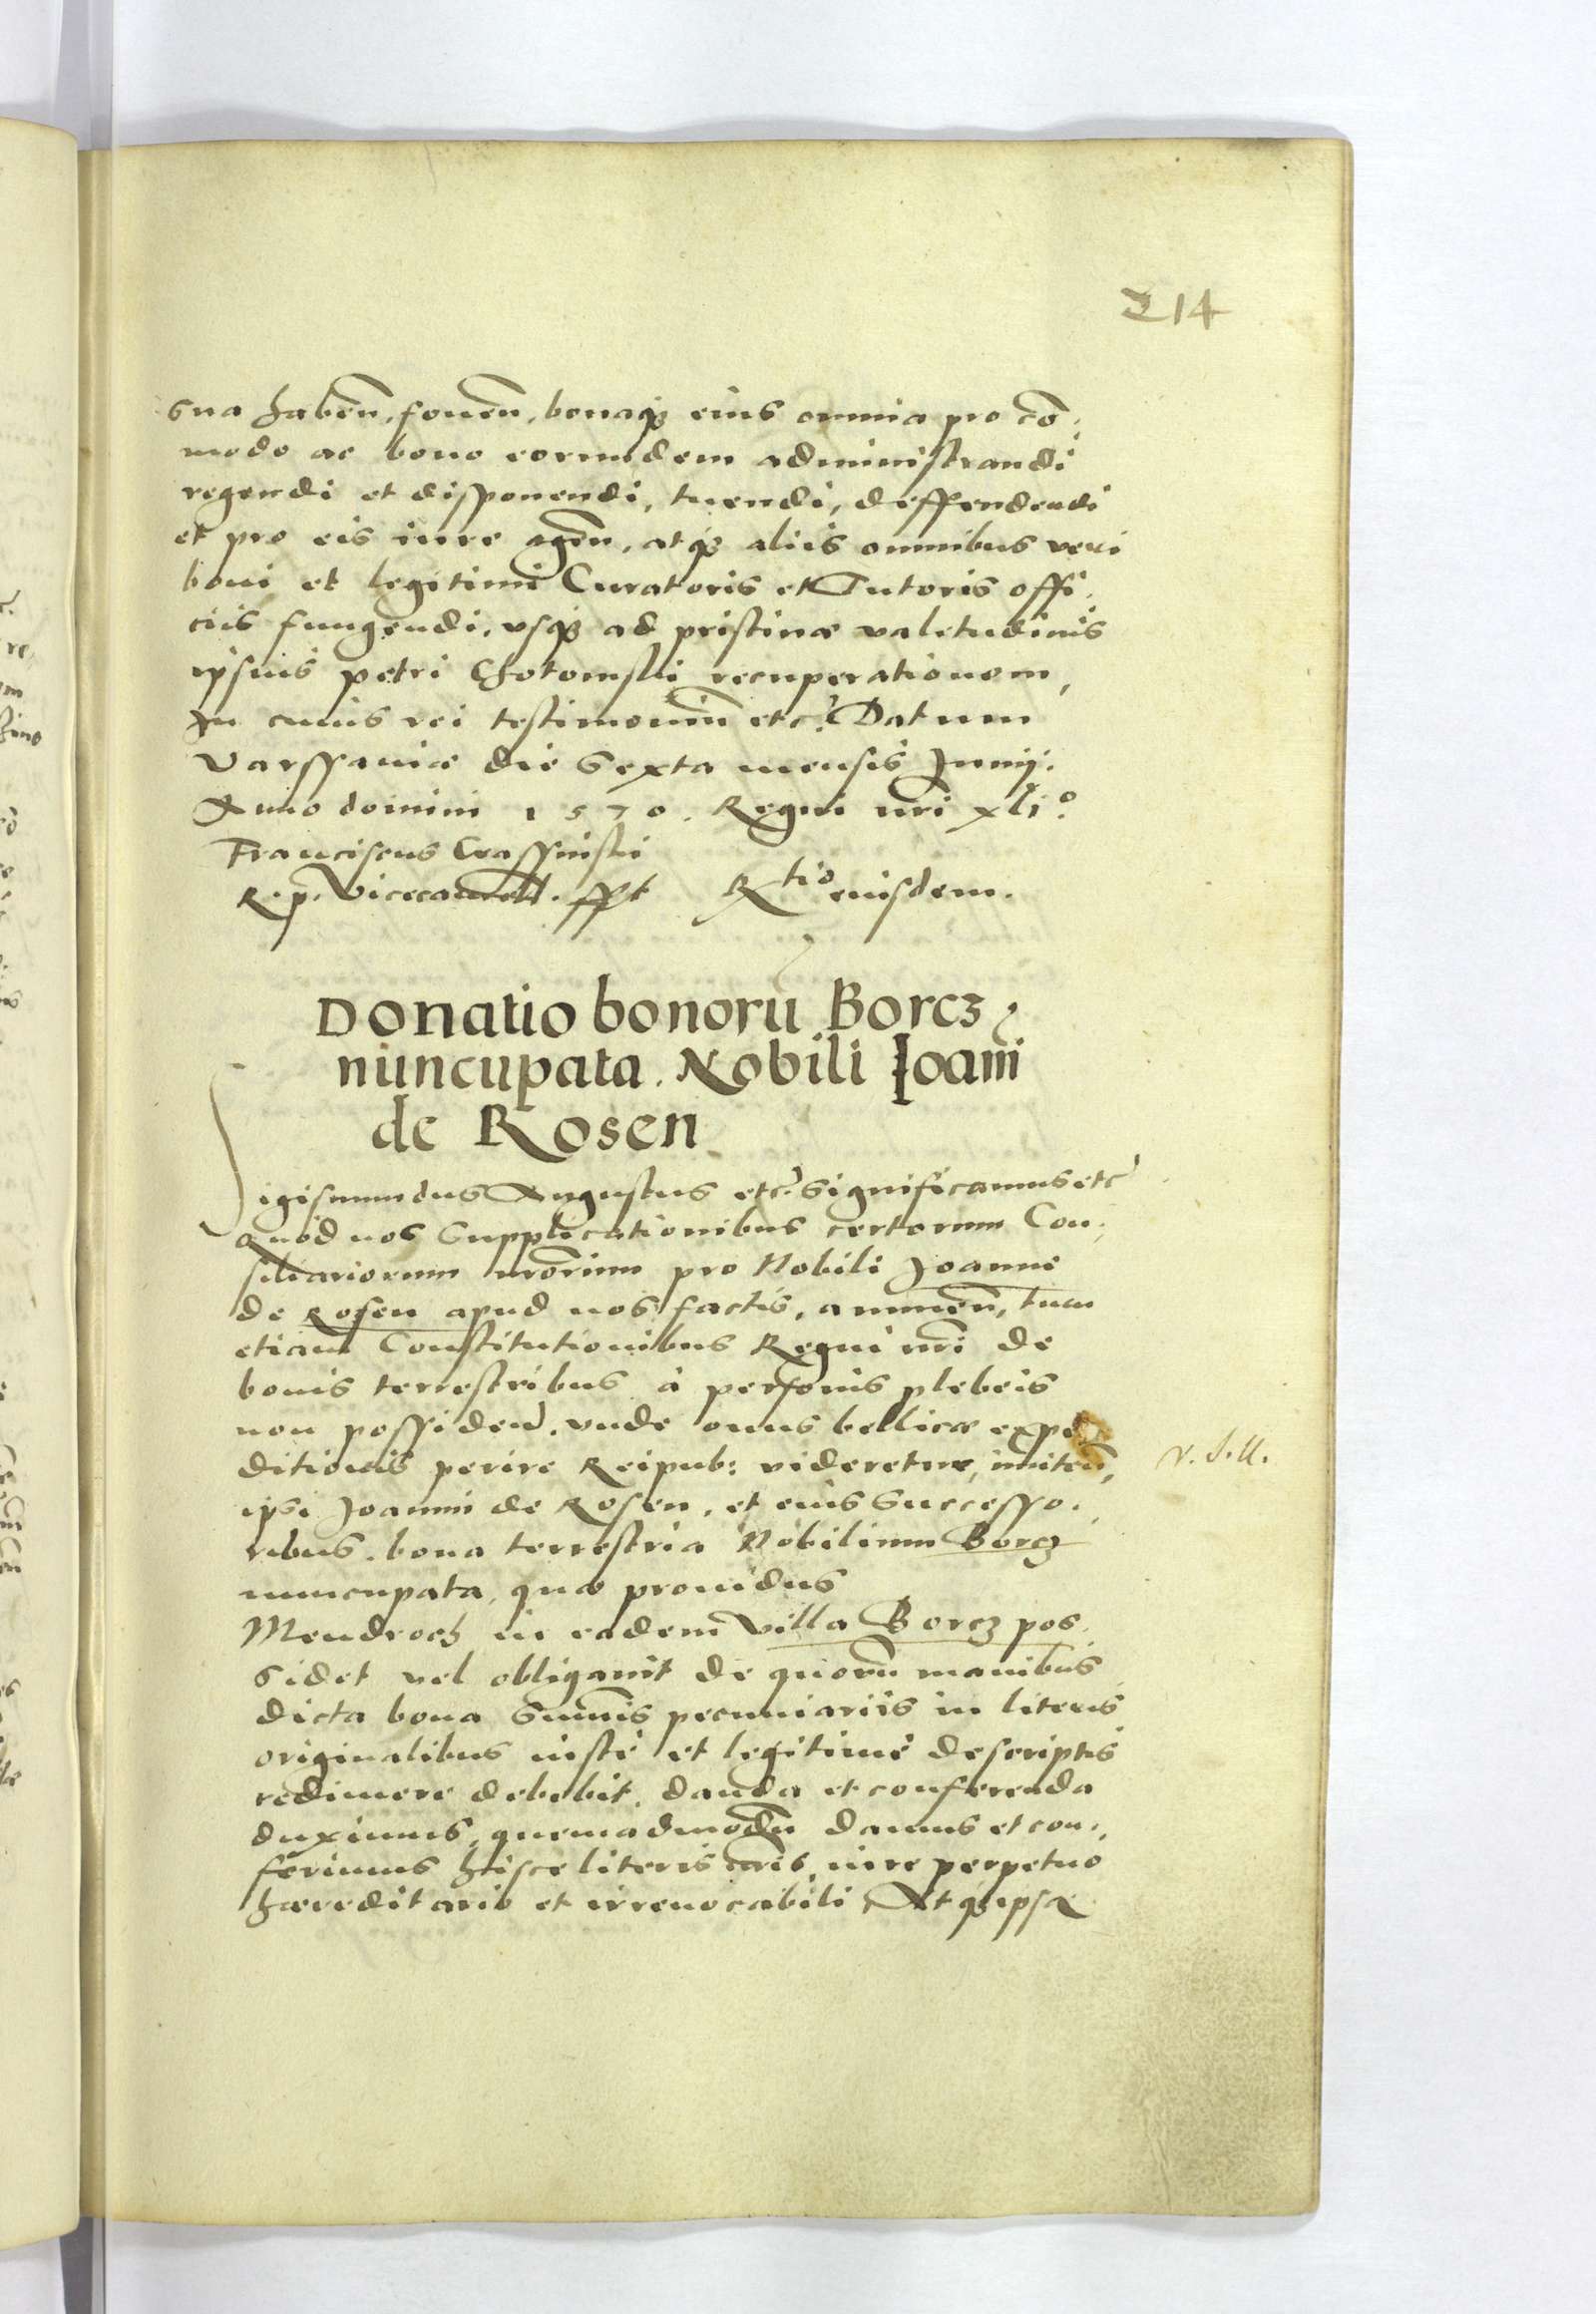 214
sua habeñ, foueñ, bonaqꝫ eius omnia pro cõ,
modo ac bono eorundem administrandi
regendi et disponendi, tuendi, deffendendi
et pro eis iure ageñ, atqꝫ aliis omnibus veri
boni et legitimi Curatoris et Tutoris offi,
ciis fungendi, vsqꝫ ad pristinæ valetudinis
ipsius petri Chotomski recuperationem,
In cuius rei testimoniũ etc: Datum
Varssauiæ die Sexta mensis Junij.
Anno domini 1570. Regni nr̃i xli°
Franciscus Crassinski
R. p. Vicecancell. sspt Rtio eiusdem.
Donatio bonorũ Borcz
nuncupata. Nobili Ioañi
de Rosen
Sigismundus Augustus etc: Significamus etc
Quod nos Supplicationibus certorum Con,
siliariorum nr̃orum pro Nobili Joanne
de Rosen apud nos factis, annueñ, tum
etiam Constitutionibus Regni nr̃i de
bonis terrestribus à personis plebeis
non possideñ. vnde onus bellicæ expe
ditionis perire Reipub: videretur, inniteñ,
v. S. ll.
ipsi Joanni de Rosen, et eius Successo,
ribus. bona terrestria Nobilium Borcz
nuncupata, quæ prouidus
Mendroch in eadem villa Borcz pos,
sidet vel obligauit de quorũ manibus
dicta bona Sum̃is pecuniariis in literis
originalibus iustè et legitimè descriptis
redimere debebit, danda et conferenda
duximus, quemadmodũ damus et con,
ferimus hisce literis nr̃is, iure perpetuo
hæreditario et irreuocabili, Atqꝫ ipse